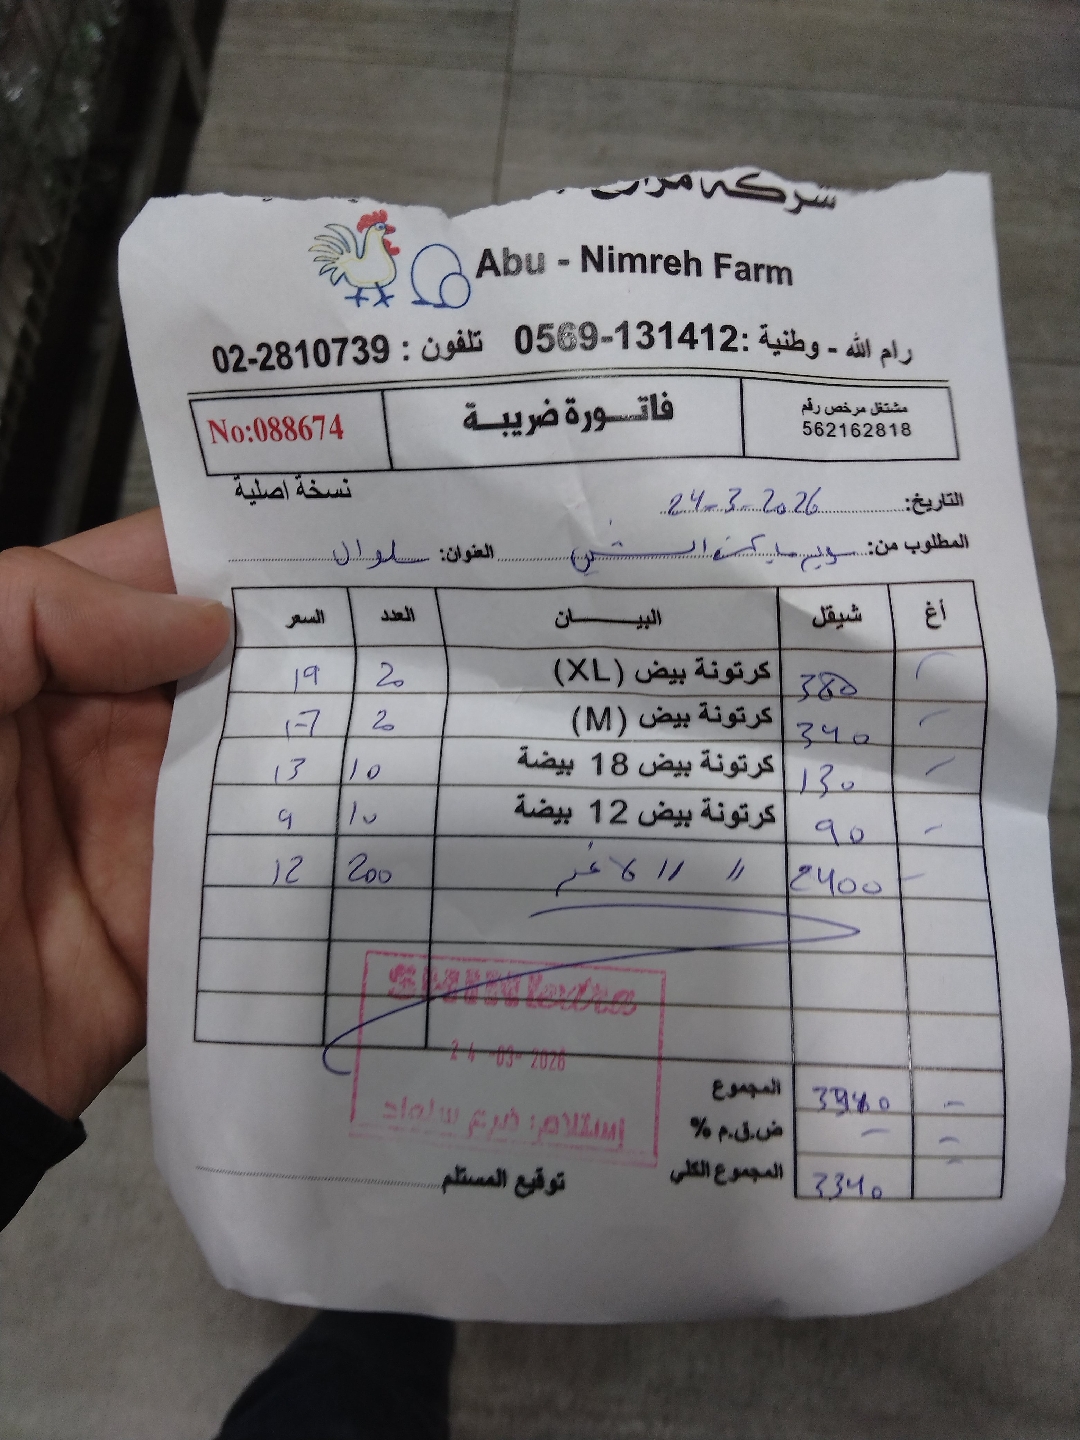 شركة مزارع
Abu - Nimreh Farm
رام الله - وطنية :0569-131412 تلفون : 02-2810739
مشتغل مرخص رقم
562162818
فاتورة ضريبة
No:088674
نسخة اصلية
التاريخ: 24-3-2026
المطلوب من: سوبر ماركت العنوان: سلوان
أغ شيقل البيان العدد السعر
380 كرتونة بيض (XL) 20 19
340 كرتونة بيض (M) 20 17
130 كرتونة بيض 18 بيضة 10 13
90 كرتونة بيض 12 بيضة 10 9
2400 〃 〃 200 12
24 -03- 2026
إستلام:
المجموع
ض.ق.م %
المجموع الكلي 3340
توقيع المستلم